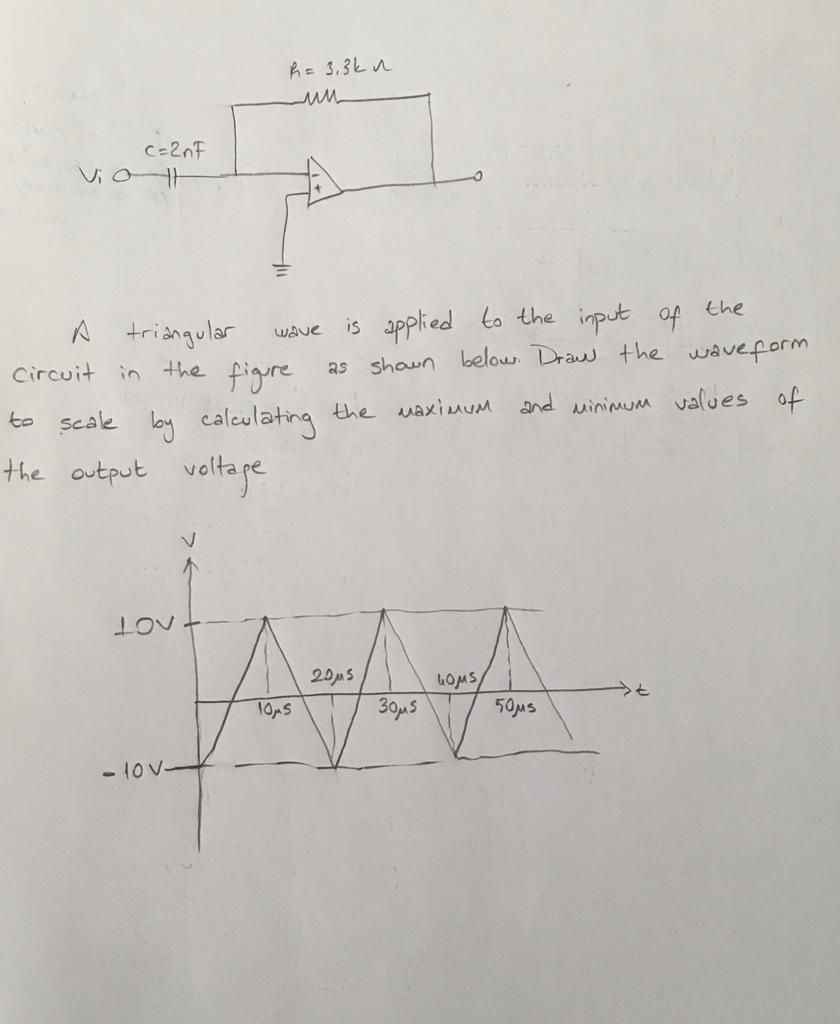 R= 3,3k Ω
C=2nF
Vi
-
+
A triangular wave is applied to the input of the
circuit in the figure as shown below. Draw the waveform
to scale by calculating the maximum and minimum values of
the output voltage
V
10V
20μs
40μs
t
10μs
30μs
50μs
-10V